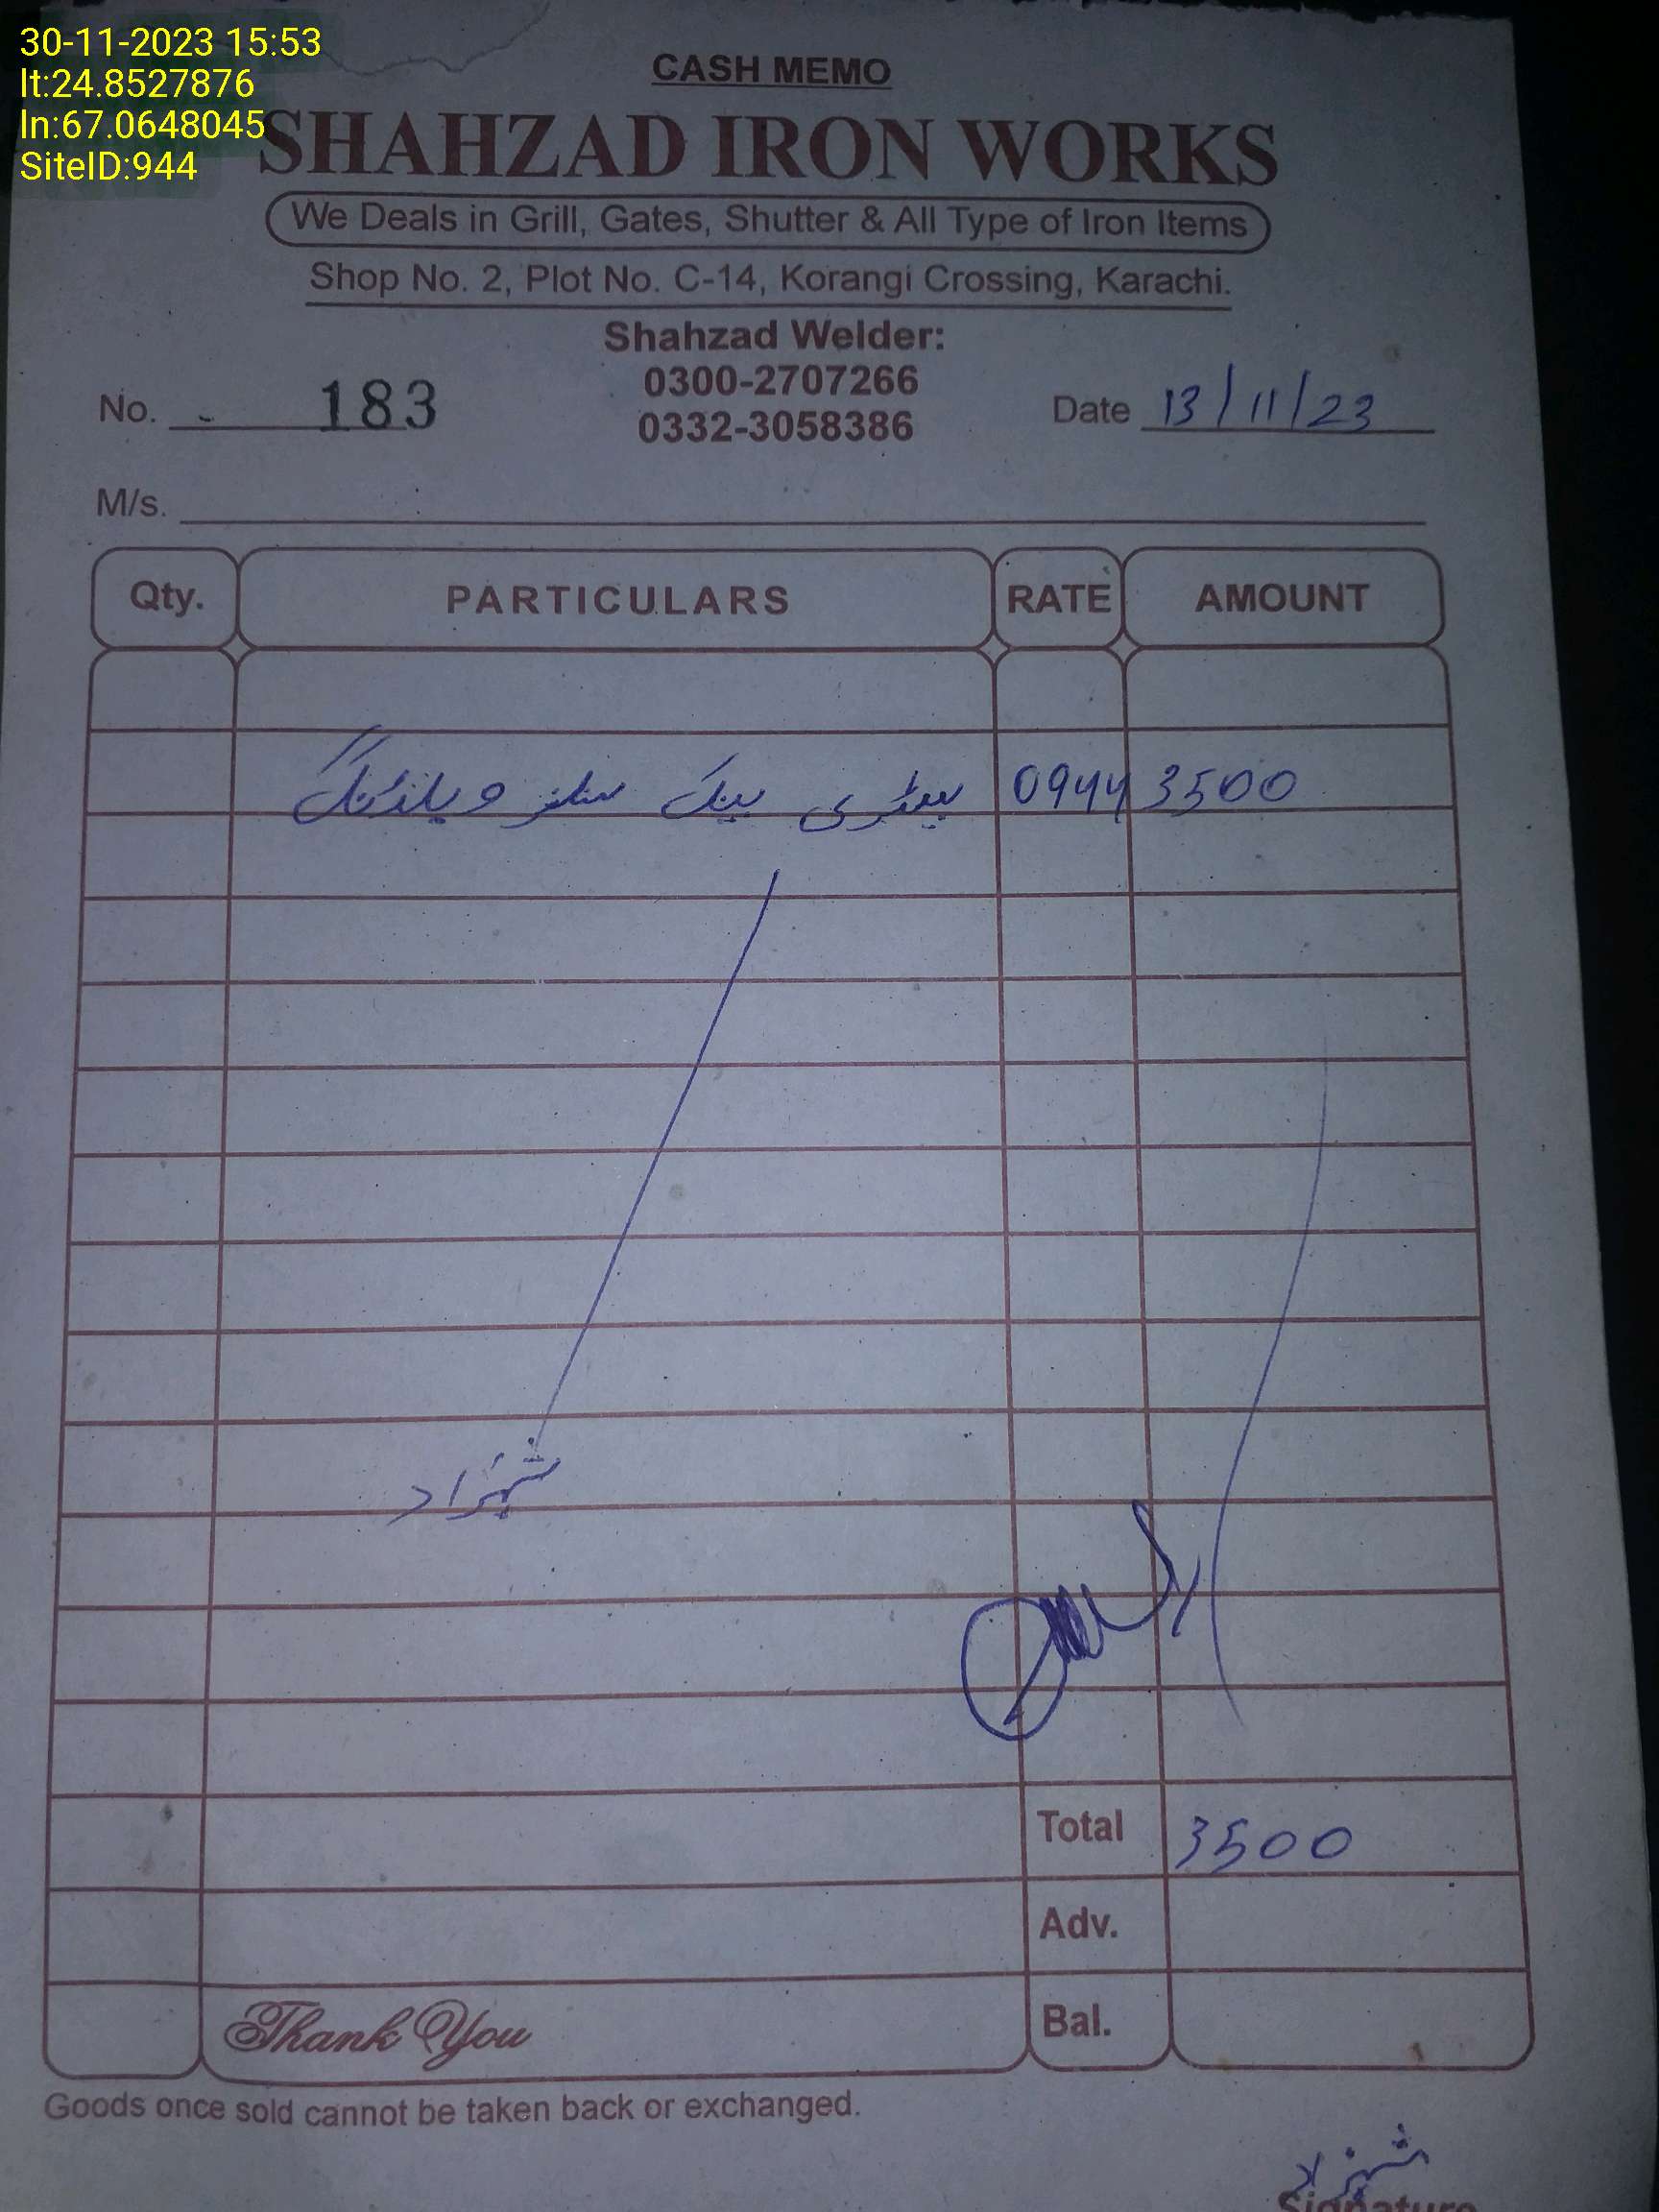 30-11-2023 15:53
lt:24.8527876
ln:67.0648045
SiteID:944
CASH MEMO
SHAHZAD IRON WORKS
We Deals in Grill, Gates, Shutter & All Type of Iron Items
Shop No. 2, Plot No. C-14, Korangi Crossing, Karachi.
Shahzad Welder:
0300-2707266
0332-3058386
No. 183
Date 13/11/23
M/s.
Qty. PARTICULARS RATE AMOUNT
بیٹری بینک ویلڈنگ 0944 3500
شہزاد
Total 3500
Adv.
Thank You Bal.
Goods once sold cannot be taken back or exchanged.
شہزاد
Signature